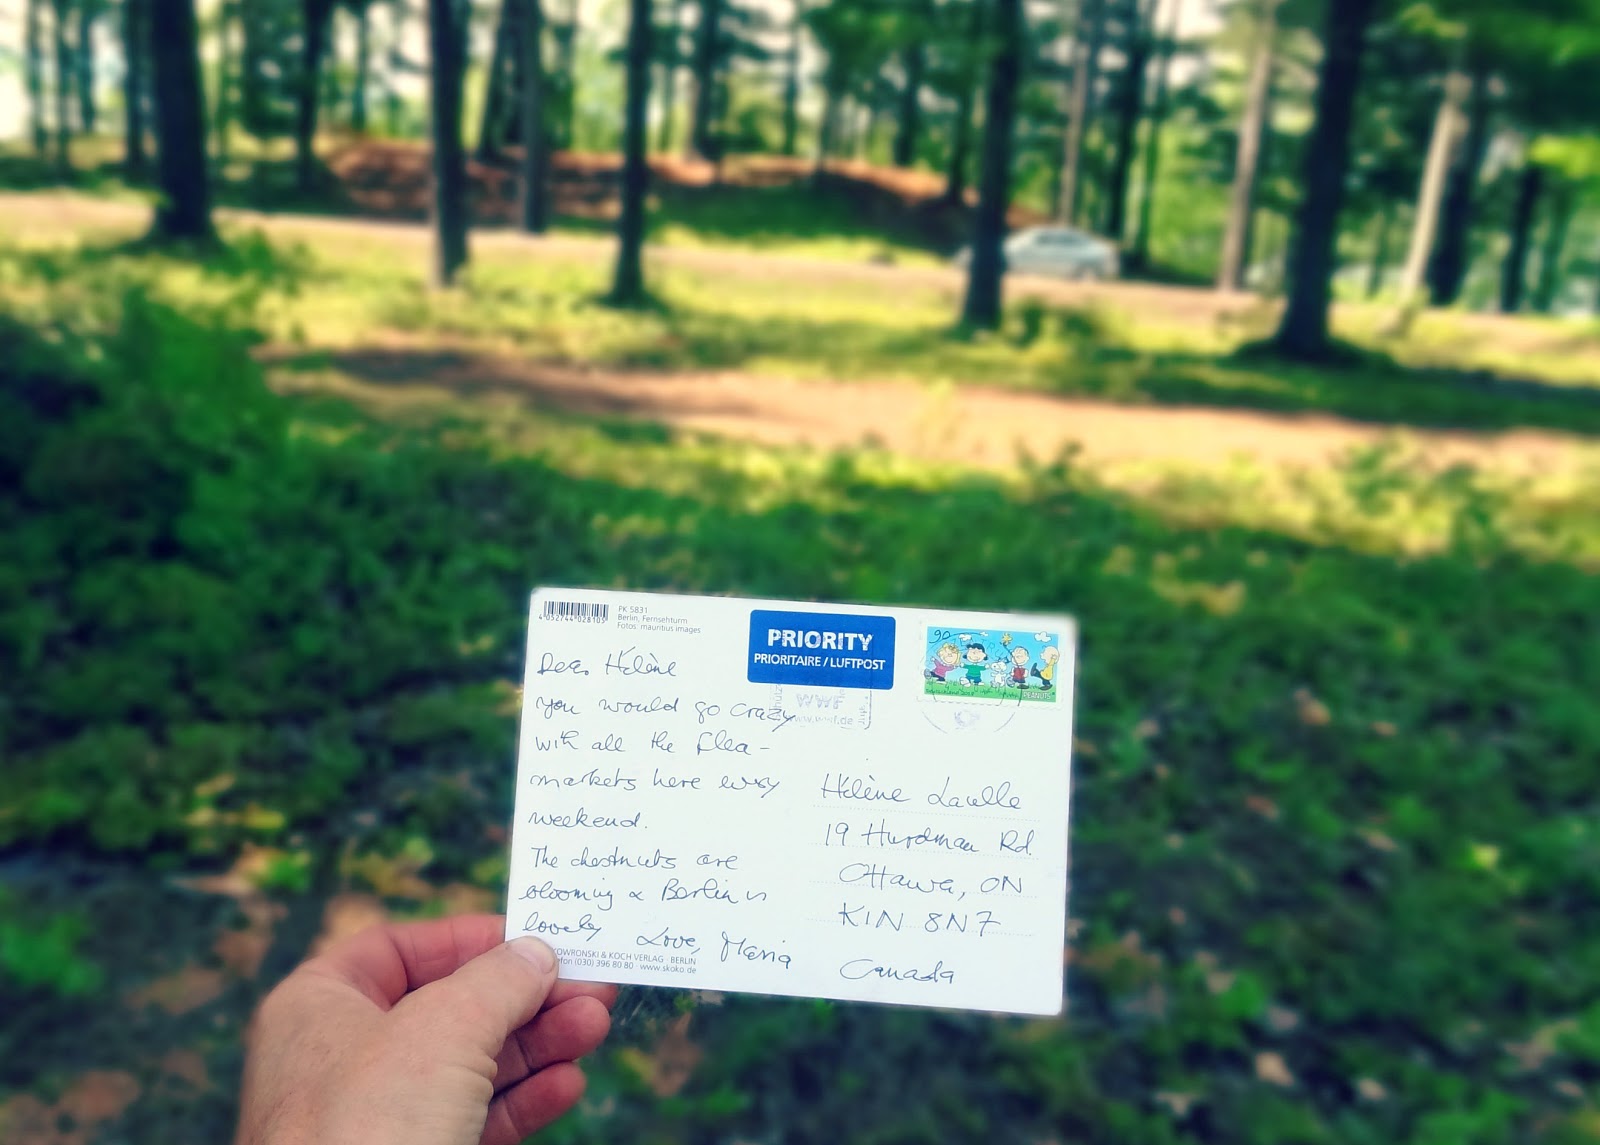 4 052744 028105
PK 5831
Berlin, Fernsehturm
Fotos: mauritius images
PRIORITY
PRIORITAIRE / LUFTPOST
90
PEANUTS
WWF
www.wwf.de
Dear Hélène
you would go crazy
with all the flea-
markets here every
weekend.
The chestnuts are
blooming & Berlin is
lovely Love, Maria
Hélène
19 Hurdman Rd.
Ottawa, ON
K1N 8N7
Canada
KOWRONSKI & KOCH VERLAG · BERLIN
fon (030) 396 80 80 · www.skoko.de